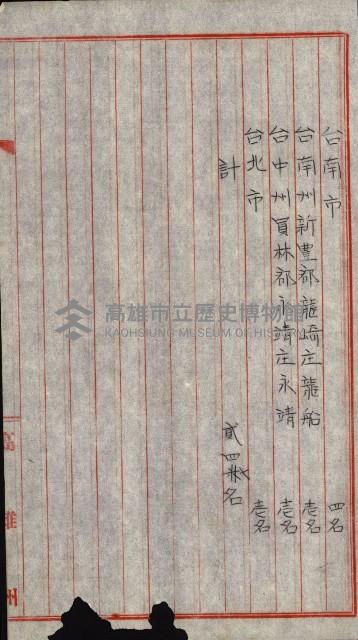 台南市 四名
台南州新豊郡龍崎庄龍船 壱名
台中州員林郡永靖庄永靖 壱名
台北市 壱名
計 貳四名
高雄州
高雄市立歷史博物館
KAOHSIUNG MUSEUM OF HISTORY